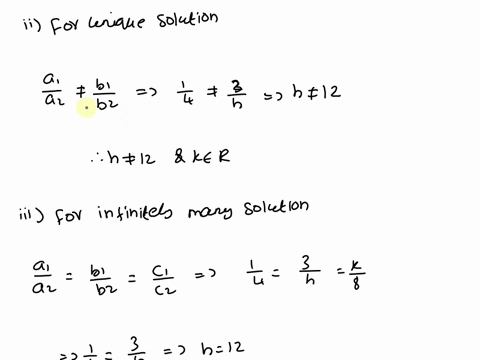 ii) for unique solution
a1/a2 ≠ b1/b2 => 1/4 ≠ 3/h => h ≠ 12
∴ h ≠ 12 & k ∈ R
iii) for infinitely many solution
a1/a2 = b1/b2 = c1/c2 => 1/4 = 3/h = k/8
=> 1/4 = 3/h => h = 12